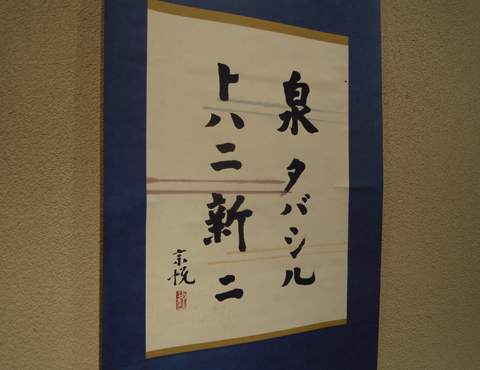 泉タバシル
トハニ新ニ
宗悦